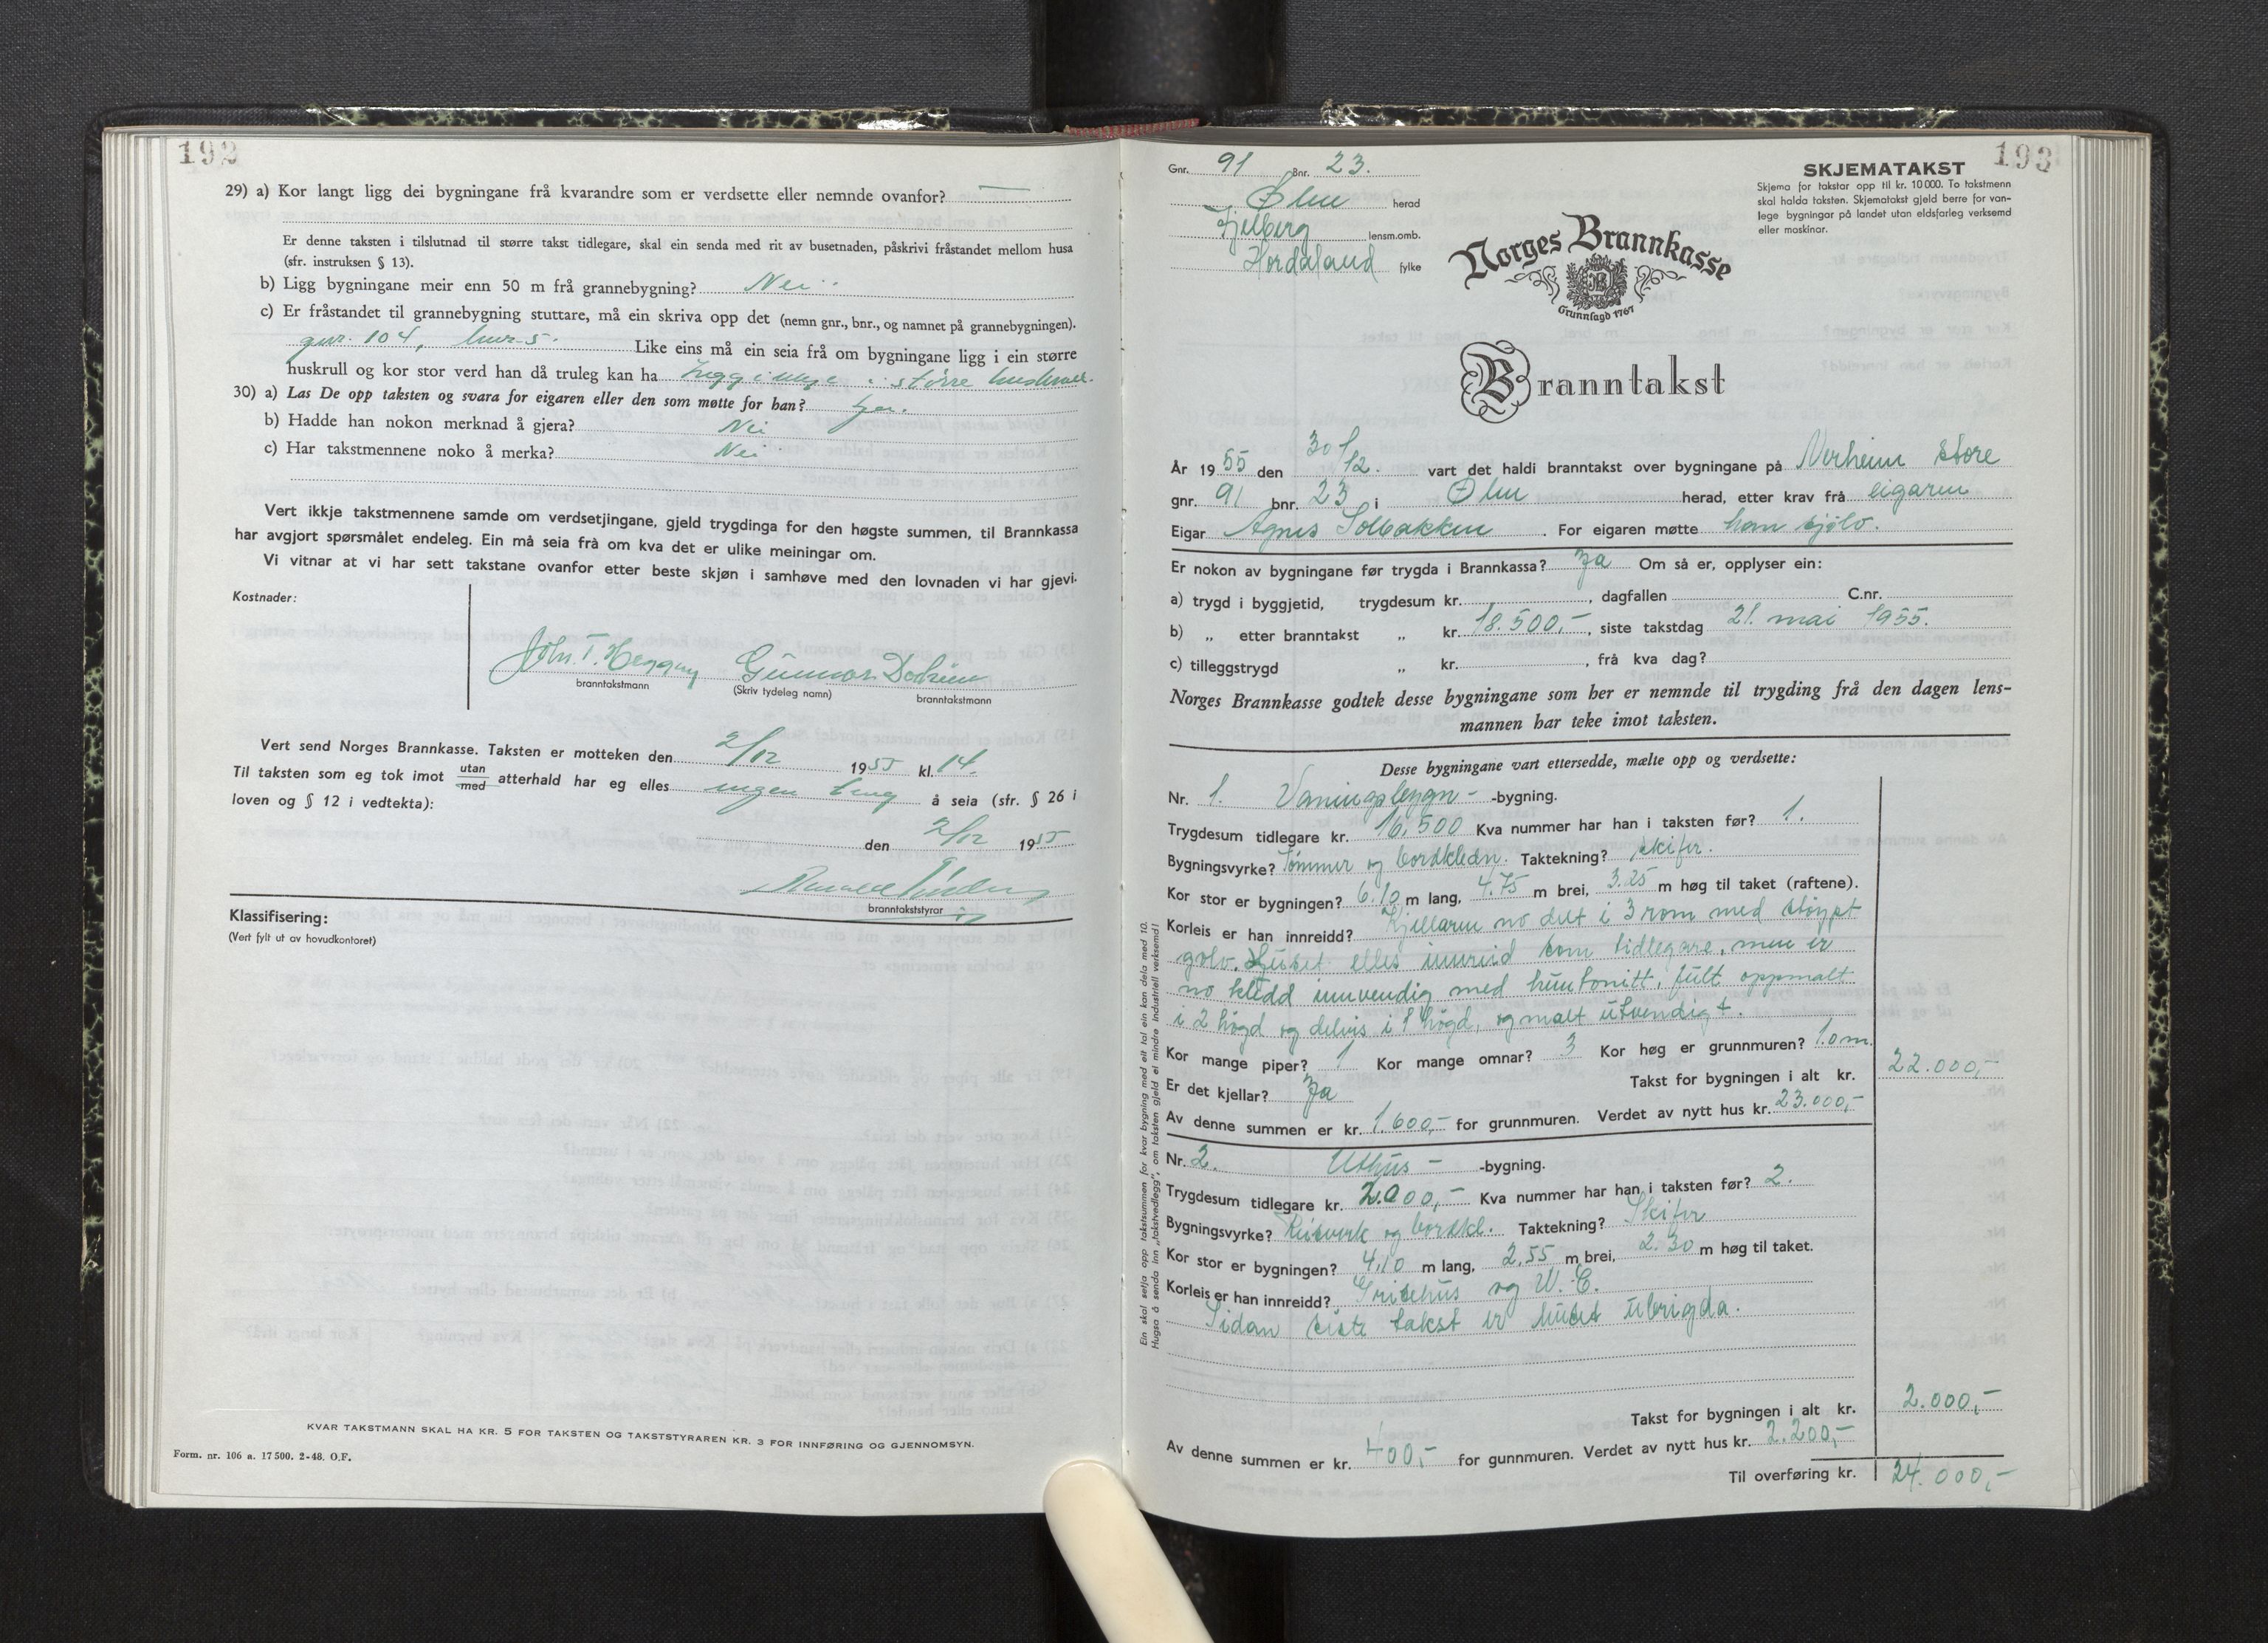 192
29) a) Kor langt ligg dei bygningane frå kvarandre som er verdsette eller nemnde ovanfor? —
Er denne taksten i tilslutnad til større takst tidlegare, skal ein senda med rit av busetnaden, påskrivi fråstandet mellom husa
(sfr. instruksen § 13).
b) Ligg bygningane meir enn 50 m frå grannebygning? Nei
c) Er fråstandet til grannebygning stuttare, må ein skriva opp det (nemn gnr., bnr., og namnet på grannebygningen).
gnr. 104, bnr. 5. Like eins må ein seia frå om bygningane ligg i ein større
huskrull og kor stor verd han då truleg kan ha ligg ikkje i større huskrull.
30) a) Las De opp taksten og svara for eigaren eller den som møtte for han? Ja.
b) Hadde han nokon merknad å gjera? Nei
c) Har takstmennene noko å merka? Nei
Vert ikkje takstmennene samde om verdsetjingane, gjeld trygdinga for den høgste summen, til Brannkassa
har avgjort spørsmålet endeleg. Ein må seia frå om kva det er ulike meiningar om.
Vi vitnar at vi har sett takstane ovanfor etter beste skjøn i samhøve med den lovnaden vi har gjevi.
Kostnader:
Joh. T. Gunnar
branntakstmann (Skriv tydeleg namn) branntakstmann
Vert send Norges Brannkasse. Taksten er motteken den 2/12 1955 kl. 14.
Til taksten som eg tok imot utan/med atterhald har eg elles ingen ting å seia (sfr. § 26 i
loven og § 12 i vedtekta):
den 2/12 1955
branntakststyrar
Klassifisering:
(Vert fylt ut av hovudkontoret)
KVAR TAKSTMANN SKAL HA KR. 5 FOR TAKSTEN OG TAKSTSTYRAREN KR. 3 FOR INNFØRING OG GJENNOMSYN.
Form. nr. 106 a. 17500. 2-48. O.F.
193
Gnr. 91 Bnr. 23.
Ølen herad
Fjelberg lensm.omb.
Hordaland fylke
SKJEMATAKST
Skjema for takstar opp til kr. 10 000. To takstmenn
skal halda taksten. Skjematakst gjeld berre for van-
lege bygningar på landet utan eldsfarleg verksemd
eller maskinar.
Norges Brannkasse
Grunnlagd 1767
Branntakst
År 1955 den 30/12. vart det haldi branntakst over bygningane på Nerheim store
gnr. 91 bnr. 23 i Ølen herad, etter krav frå eigaren
Eigar Agnes Solbakken. For eigaren møtte han sjølv.
Er nokon av bygningane før trygda i Brannkassa? Ja Om så er, opplyser ein:
a) trygd i byggjetid, trygdesum kr. , dagfallen C.nr.
b) „ etter branntakst „ kr. 18.500,-, siste takstdag 21. mai 1955.
c) tilleggstrygd „ kr. , frå kva dag?
Norges Brannkasse godtek desse bygningane som her er nemnde til trygding frå den dagen lens-
mannen har teke imot taksten.
Desse bygningane vart ettersedde, mælte opp og verdsette:
Nr. 1. Våningsbygn- -bygning.
Trygdesum tidlegare kr. 16.500 Kva nummer har han i taksten før? 1.
Bygningsvyrke? Tømmer og bordkledn. Taktekning? skifer.
Kor stor er bygningen? 6.10 m lang, 4.75 m brei, 3.25 m høg til taket (raftene).
Korleis er han innreidd? Kjellaren no delt i 3 rom med støypt
golv. Huset elles innreid som tidlegare, men er
no kledd innvendig med huntonitt, fullt oppmalt
i 2 høgd og delvis i 1 høgd, og malt utvendigt.
Kor mange piper? 1 Kor mange omnar? 3 Kor høg er grunnmuren? 1.0 m.
Er det kjellar? Ja Takst for bygningen i alt kr. 22.000,-
Av denne summen er kr. 1.600,- for grunnmuren. Verdet av nytt hus kr. 23.000,-
Nr. 2. Uthus- -bygning.
Trygdesum tidlegare kr. 2.000,- Kva nummer har han i taksten før? 2.
Bygningsvyrke? Reisverk og bordkl. Taktekning? Skifer
Kor stor er bygningen? 4,10 m lang, 2,55 m brei, 2.30 m høg til taket.
Korleis er han innreidd? Grisehus og W.C.
Sidan siste takst er huset ubrigda.
Takst for bygningen i alt kr. 2.000,-
Av denne summen er kr. 400,- for gunnmuren. Verdet av nytt hus kr. 2.200,-
Til overføring kr. 24.000,-
Ein skal setja opp takstsummen for kvar bygning med eit tal ein kan dela med 10.
Hugsa å senda inn „takstvedlegg", om taksten gjeld ei mindre industriell verksemd!